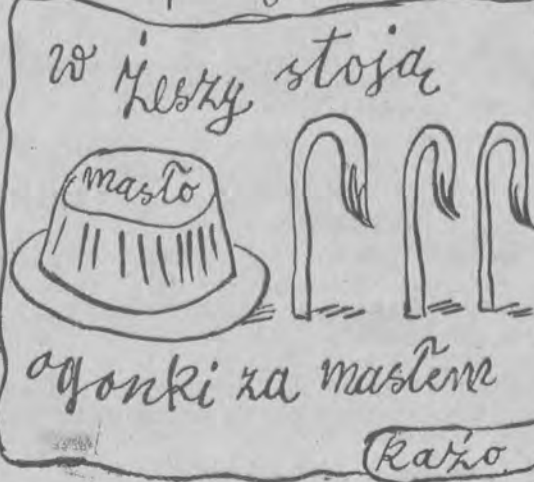 w żeszy stoją
masło
ogonki za masłem
każo